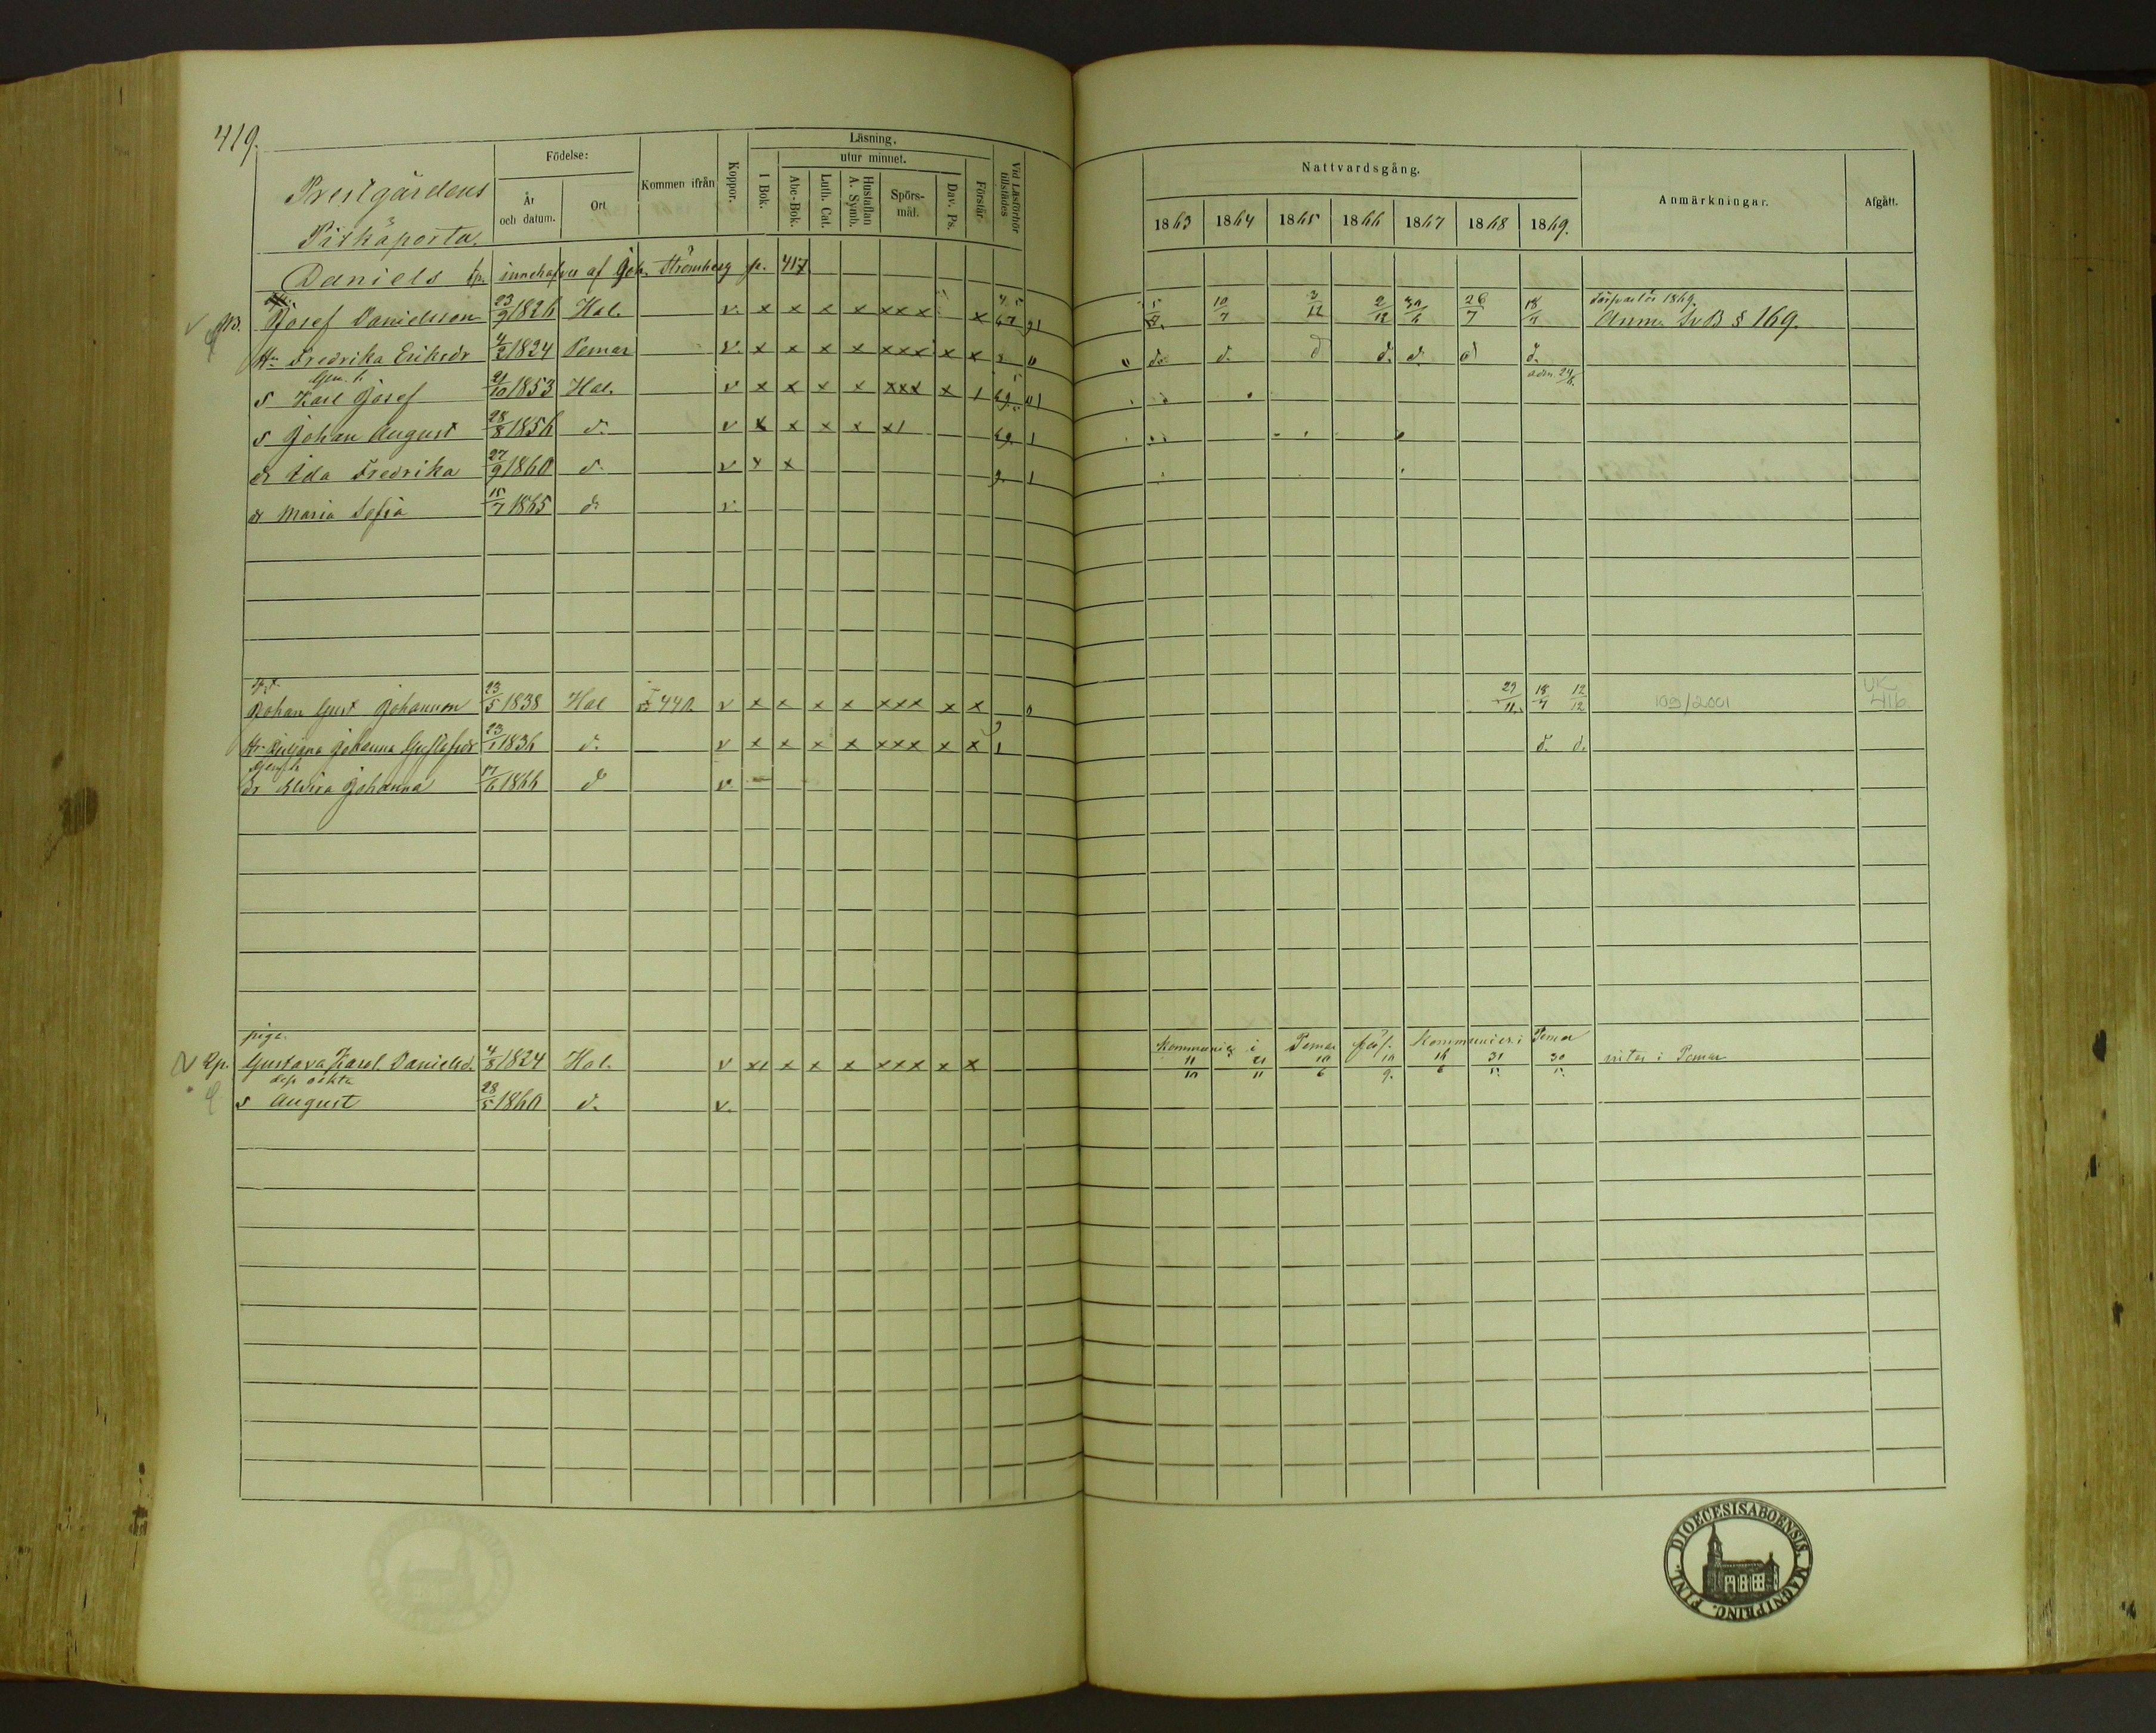 419.
Prestgårdens
Pitkäporta.
Födelse:
År
och datum.
Ort
Kommen ifrån
Koppor.
Läsning.
I Bok.
utur minnet.
Abc-Bok.
Luth. Cat.
Hustaflan
A. Symb.
Spörs-
mål.
Dav. Ps.
Förstår
Vid Läsförhör
tillstädes
Nattvardsgång.
1863 1864 1865 1866 1867 1868 1869.
Anmärkningar.
Afgått.
Daniels tp. innehafves af Joh. Strömberg p. 417
Josef Danielsson 23/9 1826 Hal. v. x x x x xxx x 10/7 3/12 2/12 30/6 26/7 18/4 Anm. Sv B § 169.
H:u Fredrika Eriksdr 4/2 1824 Pemar v. x x x x xxx x x d. d. d d. d. d d.
s Karl Josef 21/10 1853 Hal. v x x x x xxx x 1 69 adm. 24/6
s Johan August 28/8 1856 d. v x x x x x1 69 1
dr Ida Fredrika 27/9 1860 d. v x x 1
dr Maria Sofia 15/7 1865 d: v.
Johan Gust Johansson 23/5 1838 Hal 440 v x x x x xxx x x 29/11 18/4 12/12 109/2001 UK 416
H:u Juliana Johanna Gustafsdr 23/1 1836 d. v x x x x xxx x x 1 d. d.
dr Elvira Johanna 17/6 1866 d v
piga
Gustava Karol. Danielsd. 4/8 1824 Hal. v x1 x x x xxx x x 11/10 21/11 10/6 10/9. 16/6 31/5 30/5 vitas i Pemar
Kommunic. i Pemar Kommunicer. i Pemar
dess oäkta
s August 28/5 1860 d. v.
DIOECESISABOENSIS. MAGNIPRINC. FINL.